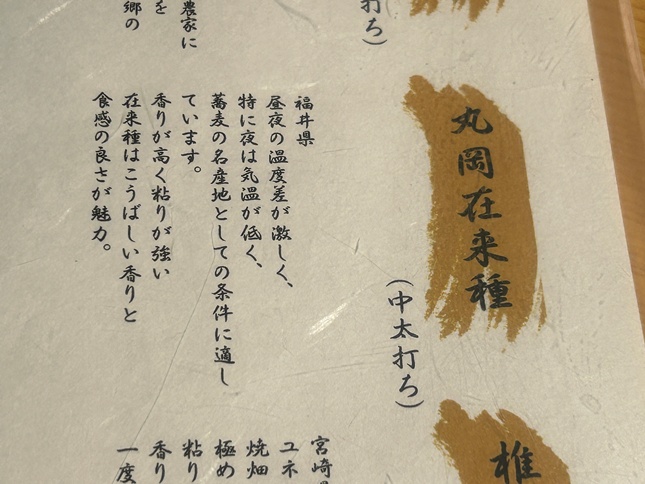 打ち）
農家に
を
郷の
丸岡在来種
（中太打ち）
福井県
昼夜の温度差が激しく、
特に夜は気温が低く、
蕎麦の名産地としての条件に適し
ています。
香りが高く粘りが強い
在来種はこうばしい香りと
食感の良さが魅力。
椎
宮崎
ユネ
焼畑
極め
粘り
香り
一度